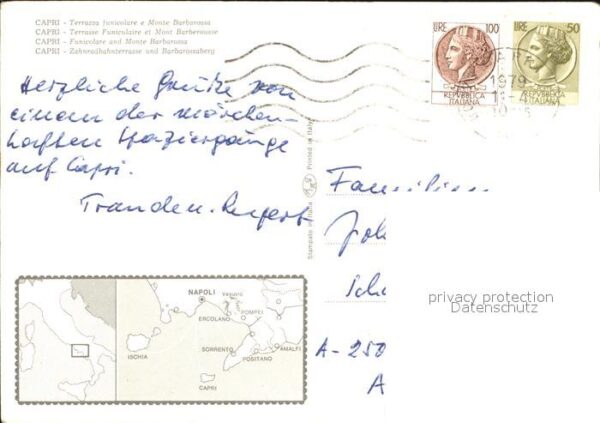 CAPRI - Terrazza funicolare e Monte Barbarossa
CAPRI - Terrasse Funiculaire et Mont Barberousse
CAPRI - Funicolare and Monte Barbarossa
CAPRI - Zahnradbahnterrasse und Barbarossaberg
LIRE 100
REPVBBLICA
ITALIANA
LIRE 50
REPVBBLICA
ITALIANA
1979
Herzliche Grüße von
einem der märchen-
haften Spaziergänge
auf Capri.
Stampato in Italia
Printed in Italy
Familien
privacy protection
Datenschutz
A-250
A
NAPOLI
Vesuvio
ERCOLANO
POMPEI
ISCHIA
SORRENTO
POSITANO
AMALFI
CAPRI